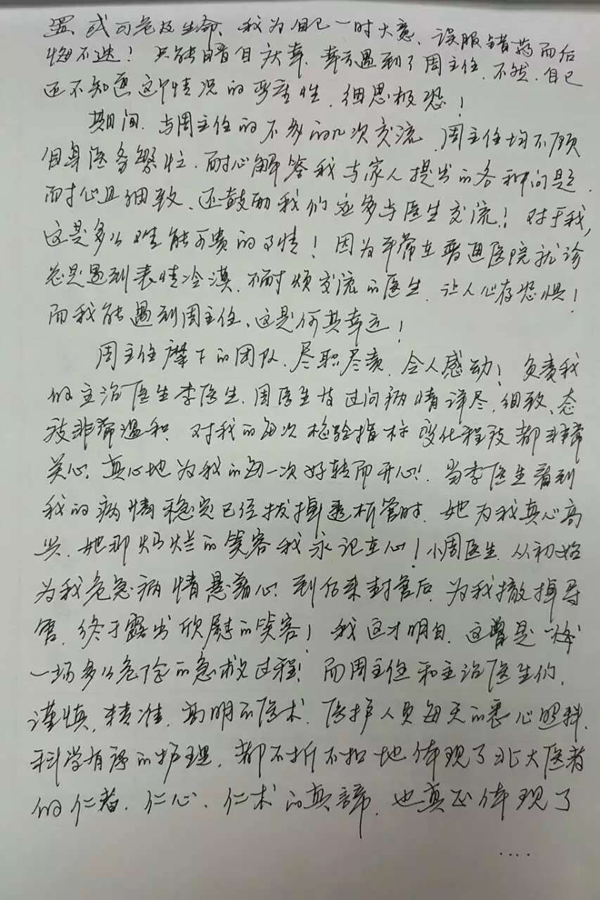 置、或可危及生命、我为自己一时大意、误服错药而后
悔不迭！只能暗自庆幸、幸亏遇到了周主任、不然、自己
还不知道这个情况的严重性、细思极恐！
期间、与周主任的不多的几次交流、周主任均不顾
自身医务繁忙、耐心解答我与家人提出的各种问题、
耐心且细致、还鼓励我们应多与医生交流！对于我，
这是多么难能可贵的事情！因为平常在普通医院就诊
总是遇到表情冷漠、不耐烦交流的医生、让人心存恐惧！
而我能遇到周主任、这是何其幸运！
周主任麾下的团队、尽职尽责、令人感动！负责我
的主治医生李医生、周医生每过问病情详尽、细致、态
度非常温和、对我的每次检验指标变化程度都非常
关心、真心地为我的每一次好转而开心！当李医生看到
我的病情稳定已经拔掉透析管时、她为我真心高
兴、她那灿烂的笑容我永记在心！小周医生、从初始
为我危急病情悬着心、到后来封管后、为我撤掉导
管、终于露出欣慰的笑容！我这才明白、这曾是
一场多么危险的急救过程！而周主任和主治医生们、
谨慎、精准、高明的医术、医护人员每天的悉心照料、
科学有序的护理、都不折不扣地体现了北大医者
的仁者、仁心、仁术的真谛、也真正体现了
....